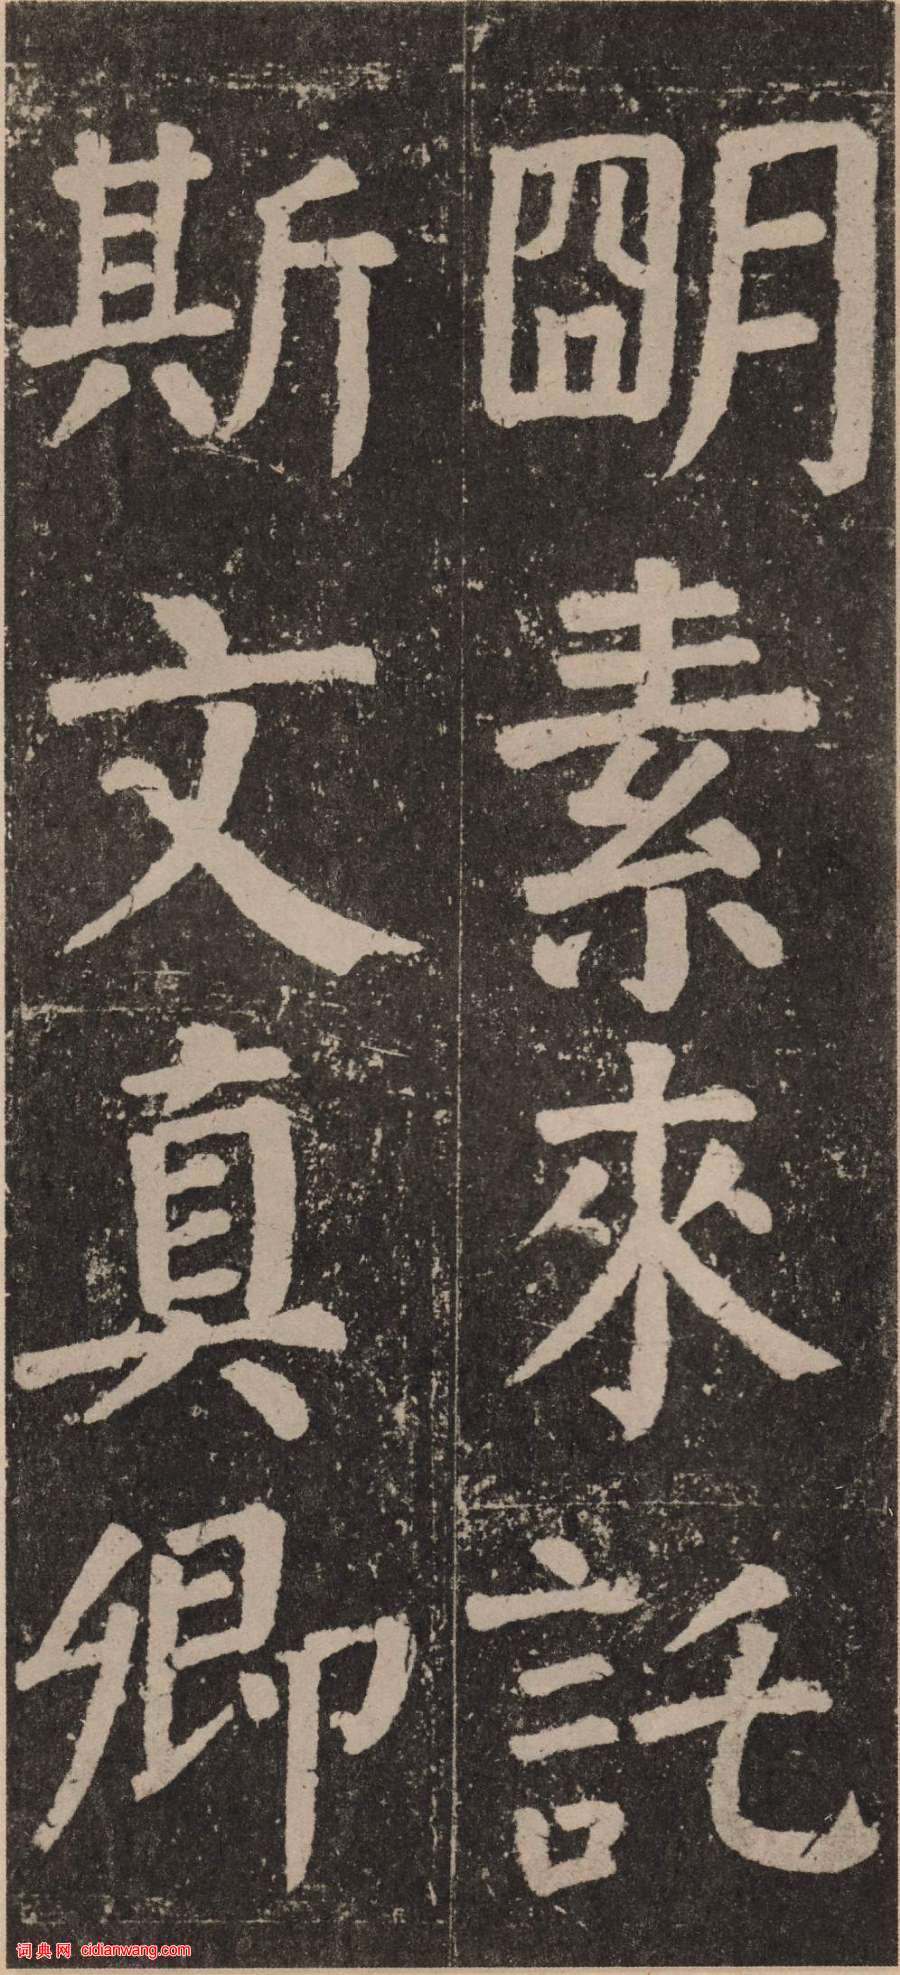 朙素來託
斯文真卿
词典网 cidianwang.com